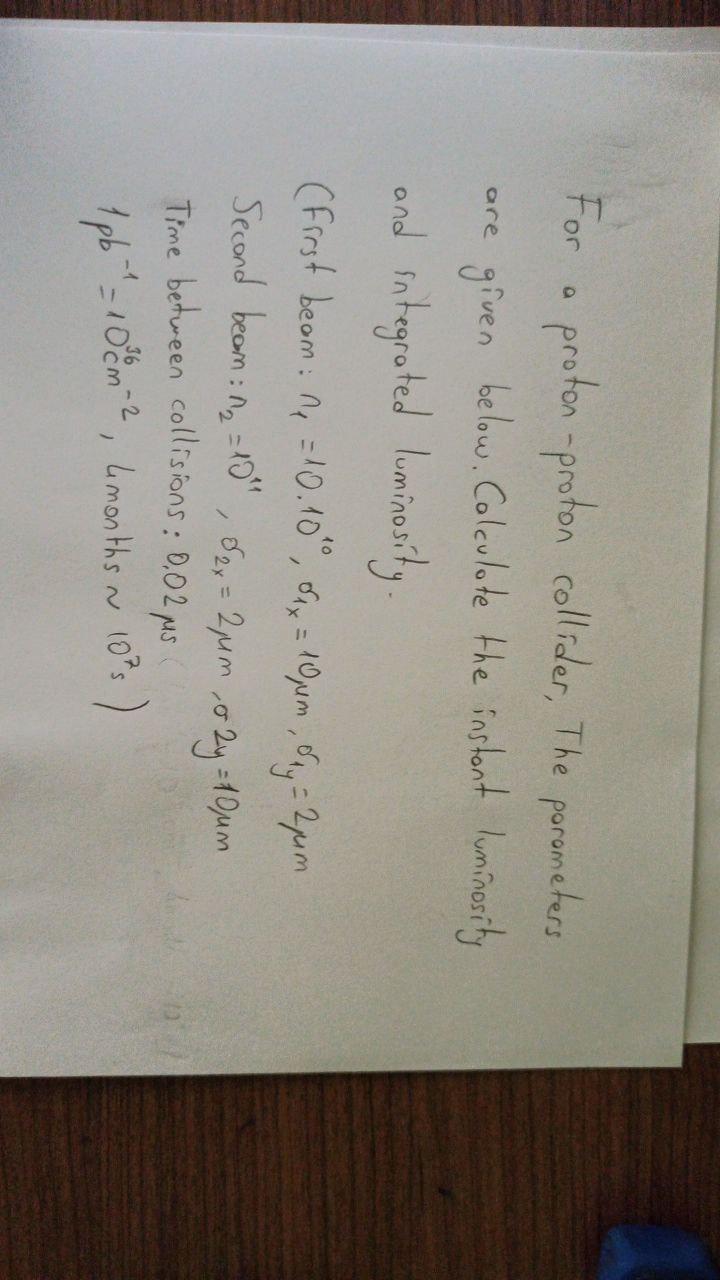 For a proton-proton collider, The parameters
are given below. Calculate the instant luminosity
and integrated luminosity.
(First beam: n₁ = 10.10¹⁰, σ₁ₓ = 10μm, σ₁y = 2μm
Second beam: n₂ = 10¹¹, σ₂ₓ = 2μm, σ2y = 10μm
Time between collisions: 0,02 μs
1 pb⁻¹ = 10³⁶ cm⁻², 4months ~ 10⁷s)